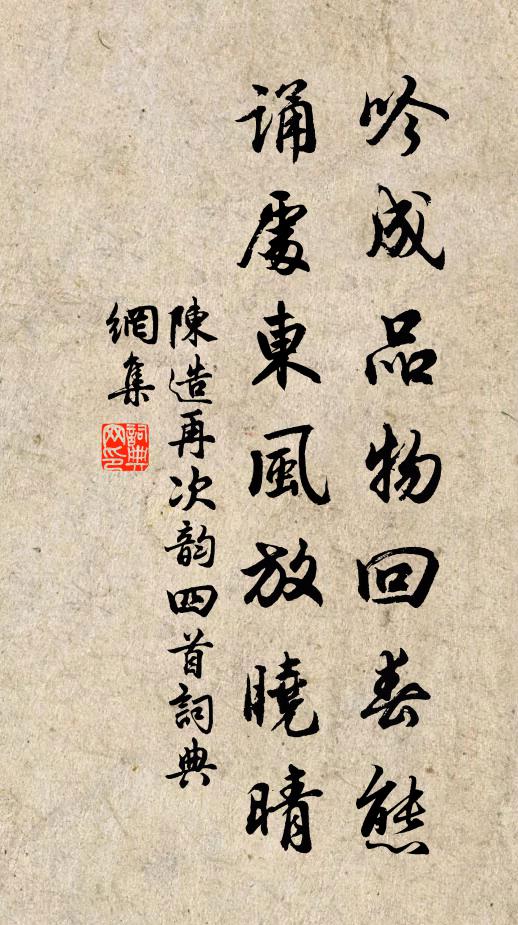 吟成品物回春態
誦處東風放曉晴
陳造再次韵四首詞典
網集
詞典
网印